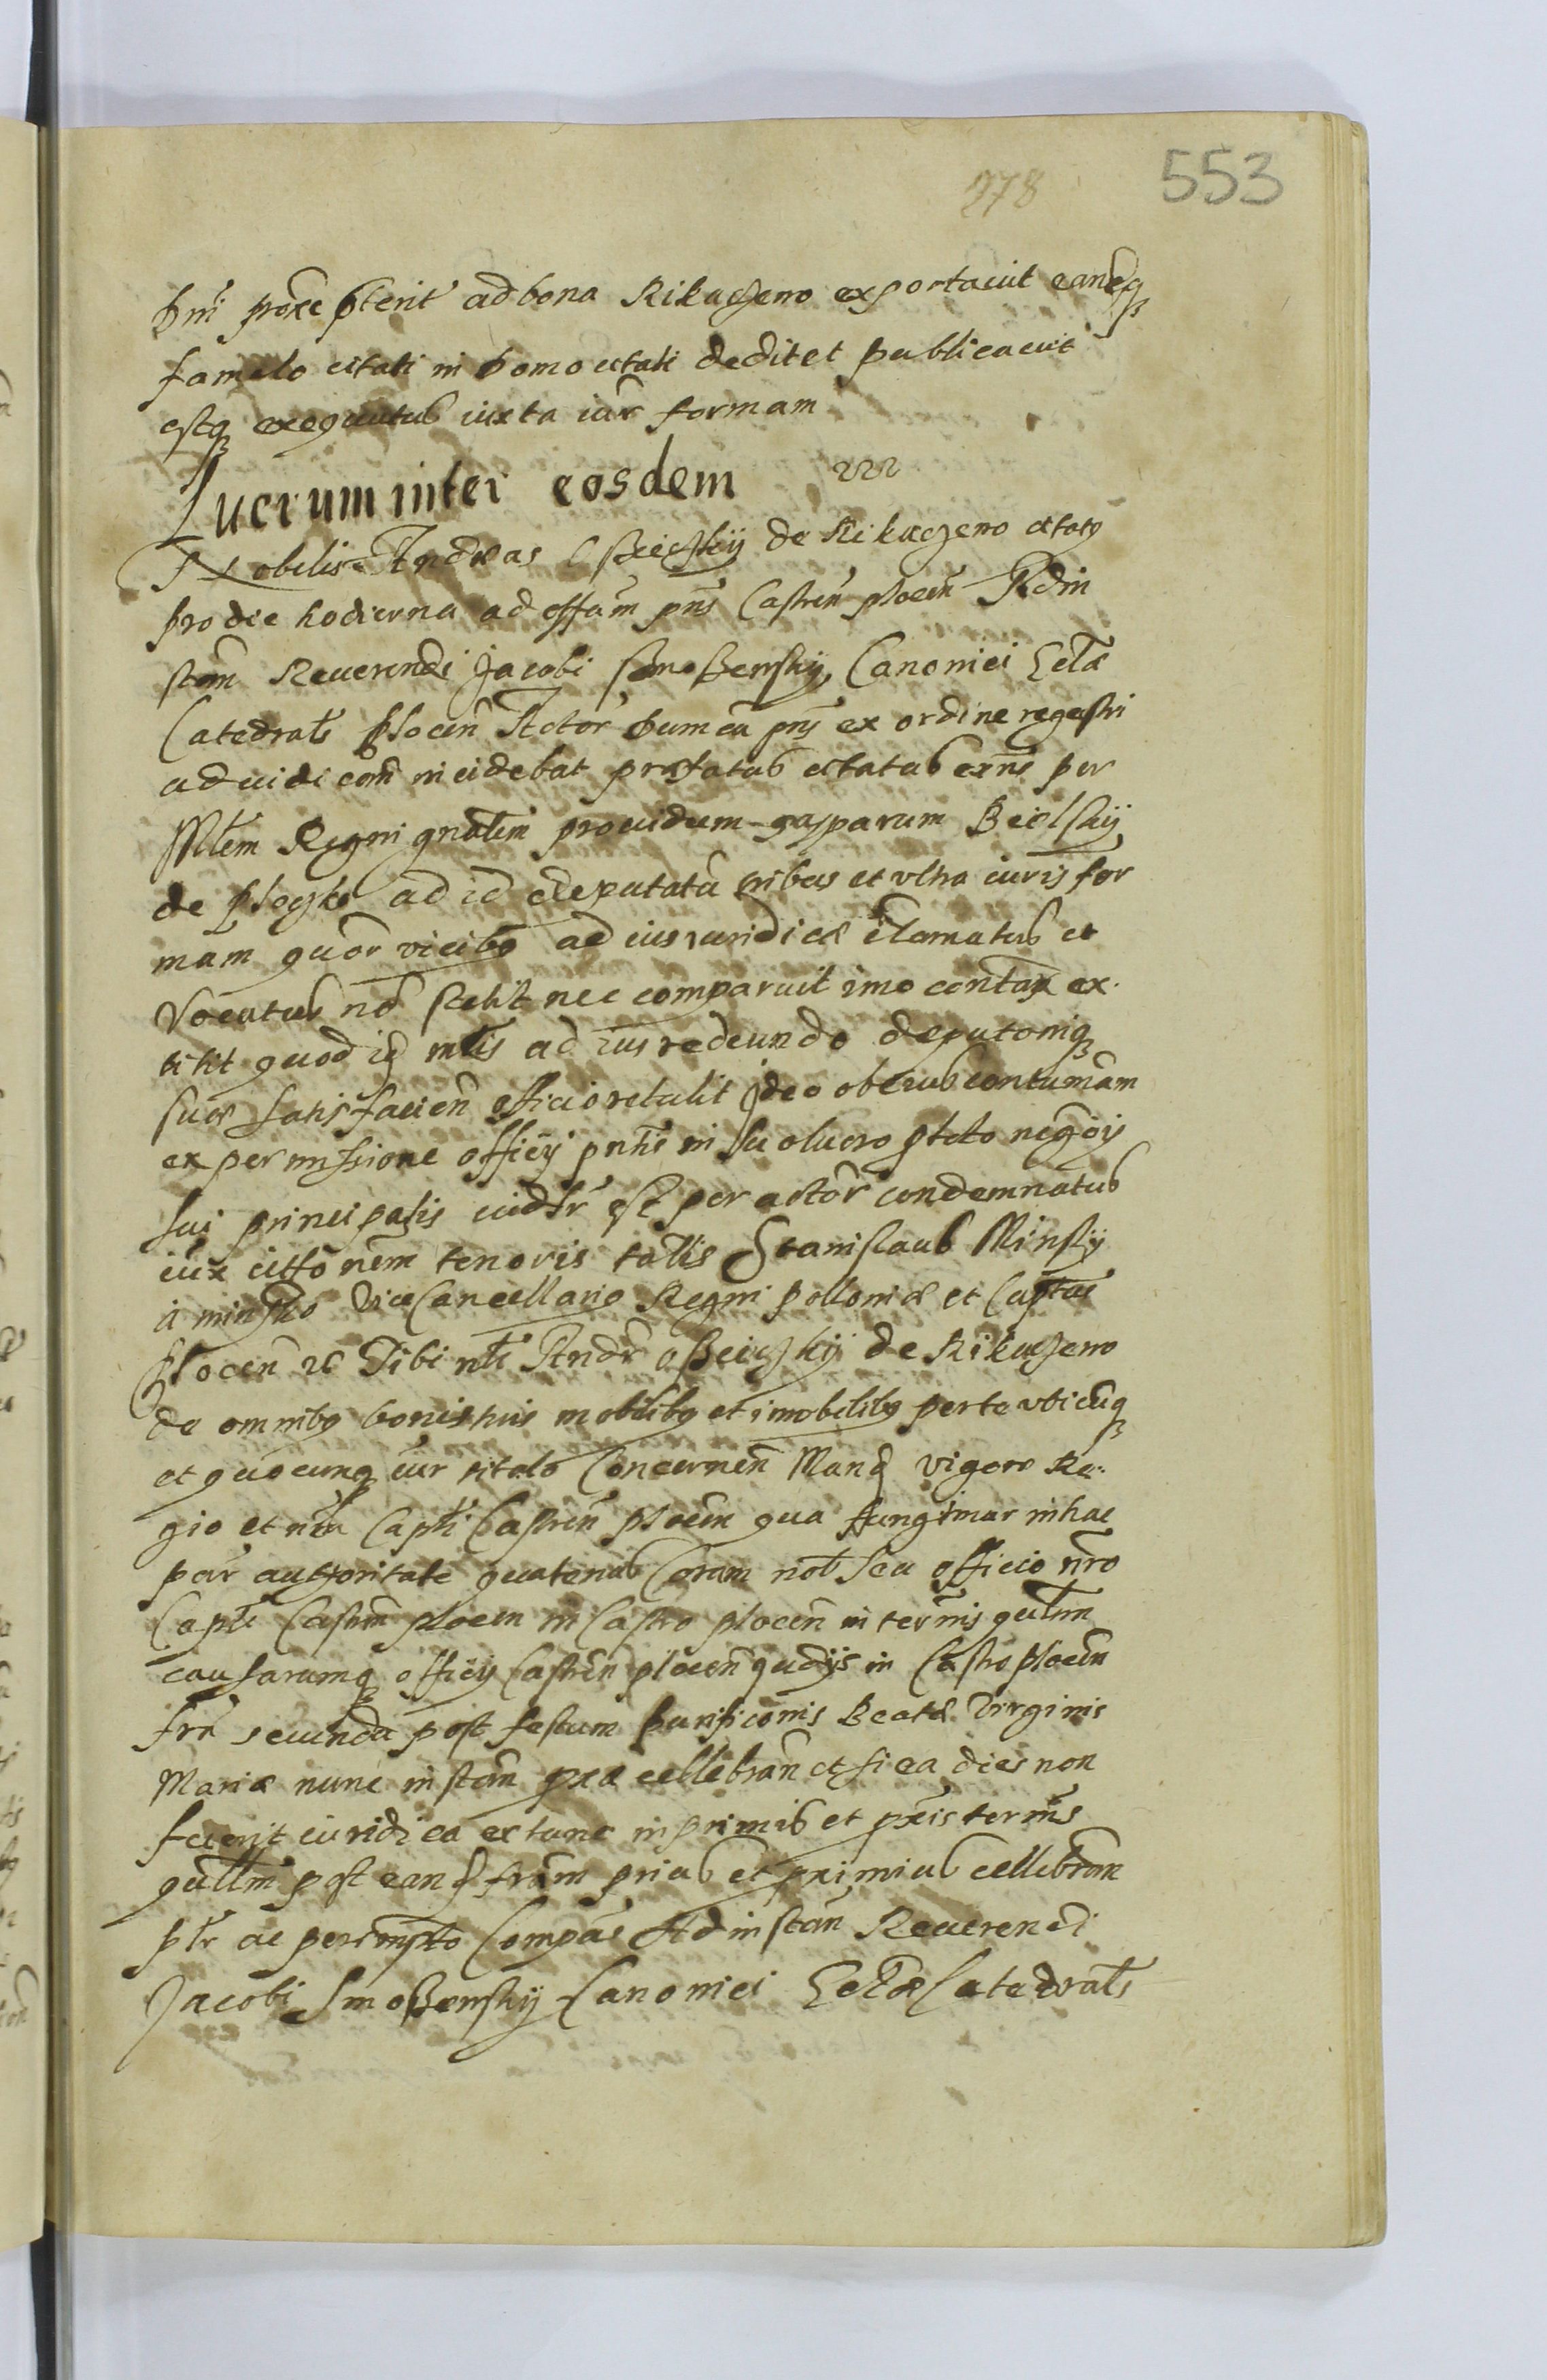 278 553
Dni proxe pterit ad bona Kikaczewo exportavit eandemq
famulo citati in domo citati dedit et publicavit
estq exequutus iuxta iur formam
Lucrum inter eosdem
Nobilis Andreas Osseiczskij de Kikaczewo citatq
pro die hodierna ad offm pns Castren plocen Ad in
stam Reuerendi Jacobi Smoszewskij, Canonici Eclæ
Catedrals plocen Actor dum ca pns ex ordine regestri
ad iudicom incidebat præfatus citatus exns per
Mltem Regni gnalem prouidum gasparum Bielskij
de plogko ad id deputatu tribus et vltra iuris for
mam quor vicibq ad ius iuridicæ clamatus et
Vocatus no stetit nec comparuit imo contax ex
titit quod is mltis ad ius redeundo deputoniq
suæ satisfacien officio retulit ideo ob eius contumam
ex permissione officij pntis in lucro ptito negoij
sui principalis videlr est per actor condemnatus
iux cittonem tenoris talis Stanislaus Minskij
a minsko ViceCancellariq Regni polloniæ et Captae
plocen etc Tibi nbli Andr osseiczskij de Kikaczewo
de omnibq bonis tuis mobilibq et imobilibq per te vbicunq
et quocunq iur titulo Concernen Mang vigore Re
gio et nra Capti Castren plocen qua fungimur in hac
par authoritate quatenus Coram nob seu officio nro
Capti Castren plocen in Castro plocen in termis qulm
causarumq officij Castren plocen judijs in Castro plocen
fra secunda post festum purificonis Beatæ Virginis
Mariæ nunc instan pxæ cellebran et si ea dies non
fuerit iuridica ex tunc in primis et pxeis termis
qullm post eand fram prius et primius cellebran
ptr ac perempto Compas Ad instan Reuerendi
Jacobi Smoszewskij Canonici Eclæ Catedrals